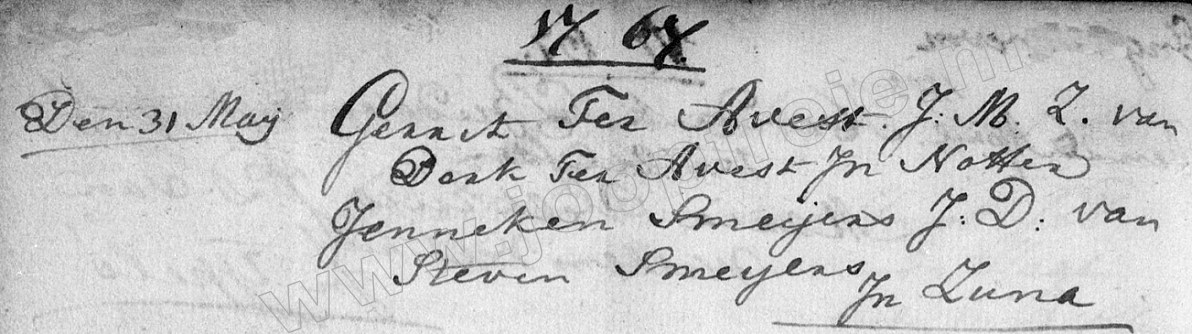 1767.
Den 31 Maij Gerrit Ter Avest. J: M. Z. van
Derk Ter Avest Jn Notter
Jenneken Smeijers J: D: van
Steven Smeijers
Jn Zuna